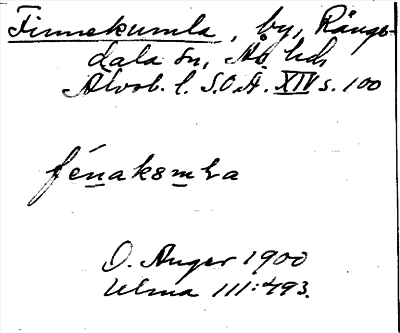 Finnekumla, by, Rångs-
dala sn, Ås hd,
Älvsb. l. S.O.Ä. XIV s. 100
fénaksmɫa
D. Auger 1900
Ulma 111:493.